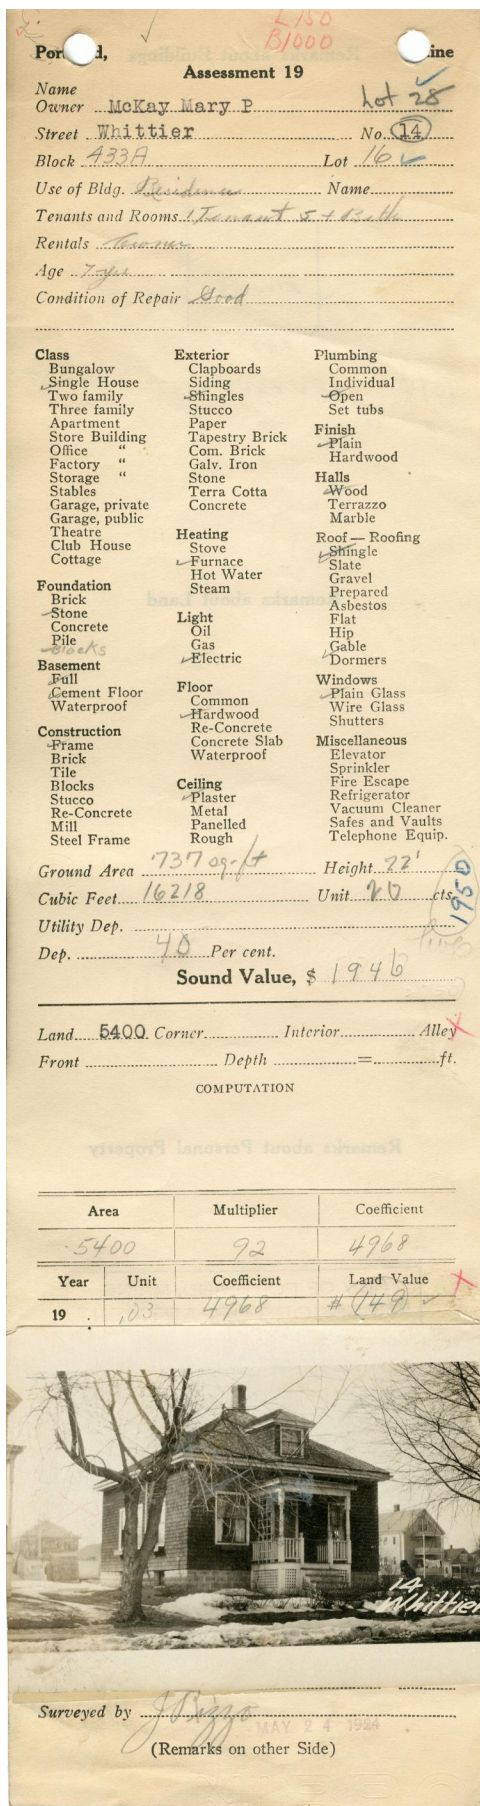 L 150
B1000
Por d, ine
Assessment 19
Name
Owner McKay Mary P Lot 28
Street Whittier No. 14
Block 433A Lot 16
Use of Bldg. Residence Name
Tenants and Rooms 1 Tenant 5 + Bath
Rentals Owner
Age 7 yrs
Condition of Repair Good
Class
Bungalow
Single House
Two family
Three family
Apartment
Store Building
Office "
Factory "
Storage "
Stables
Garage, private
Garage, public
Theatre
Club House
Cottage
Foundation
Brick
Stone
Concrete
Pile
Blocks
Basement
Full
Cement Floor
Waterproof
Construction
Frame
Brick
Tile
Blocks
Stucco
Re-Concrete
Mill
Steel Frame
Exterior
Clapboards
Siding
Shingles
Stucco
Paper
Tapestry Brick
Com. Brick
Galv. Iron
Stone
Terra Cotta
Concrete
Heating
Stove
Furnace
Hot Water
Steam
Light
Oil
Gas
Electric
Floor
Common
Hardwood
Re-Concrete
Concrete Slab
Waterproof
Ceiling
Plaster
Metal
Panelled
Rough
Plumbing
Common
Individual
Open
Set tubs
Finish
Plain
Hardwood
Halls
Wood
Terrazzo
Marble
Roof — Roofing
Shingle
Slate
Gravel
Prepared
Asbestos
Flat
Hip
Gable
Dormers
Windows
Plain Glass
Wire Glass
Shutters
Miscellaneous
Elevator
Sprinkler
Fire Escape
Refrigerator
Vacuum Cleaner
Safes and Vaults
Telephone Equip.
Ground Area 737 sq-ft Height 22'
Cubic Feet 16218 Unit 20 cts.
1950
Utility Dep.
Dep. 40 Per cent.
Sound Value, $ 1946
Land 5400 Corner Interior Alley
Front Depth = ft.
COMPUTATION
Area Multiplier Coefficient
5400 92 4968
Year Unit Coefficient Land Value
19 .03 4968 # 149
14
Whittier
Surveyed by J Rizzo
MAY 24 1924
(Remarks on other Side)